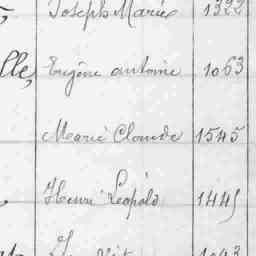 Joseph Marie 1322
lle, Eugène antoine 1063
Marie Claude 1545
Henri Léopold 1445